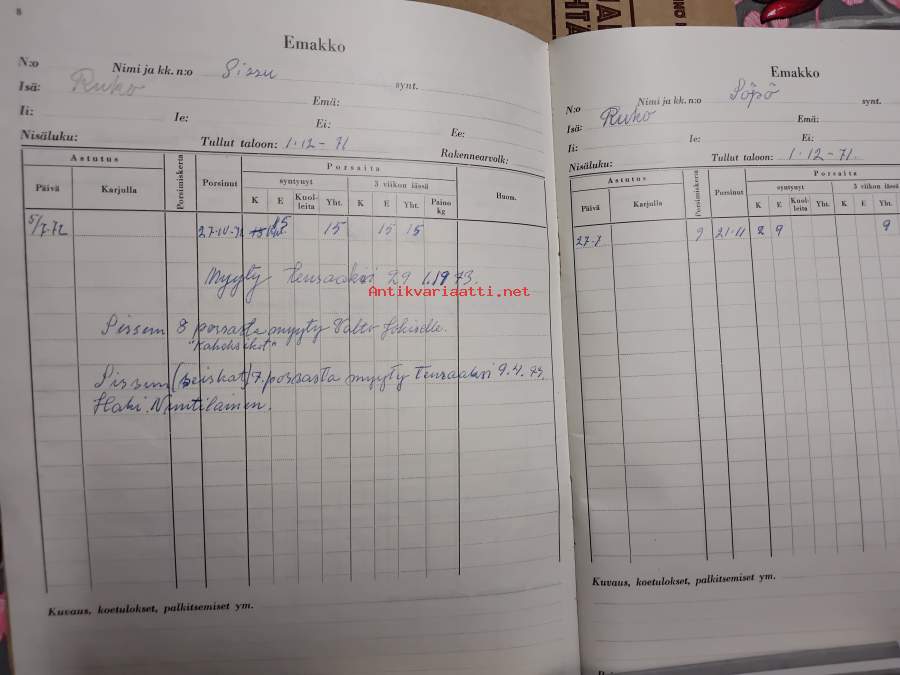 8
Emakko
N:o Nimi ja kk. n:o Sissu synt.
Isä: Ruko Emä:
Ii: Ie: Ei: Ee:
Nisäluku: Tullut taloon: 1.12-71 Rakennearvolk:
Astutus Porsimiskerta Porsinut Porsaita Huom.
syntynyt 3 viikon iässä
Päivä Karjulla K E Kuol-leita Yht. K E Yht. Paino kg
5/7.72 15 15 15 15
Myyty teuraaksi 29 1.1973.
Sissem 8 porsasta myyty Valto
"Kahdeksikot"
Sissem (seiskat) 7. porsasta myyty teuraaksi 9.4.73.
Haki
Kuvaus, koetulokset, palkitsemiset ym.
Emakko
N:o Nimi ja kk. n:o Söpö synt.
Isä: Ruko Emä:
Ii: Ie: Ei:
Nisäluku: Tullut taloon: 1.12-71.
Astutus Porsimiskerta Porsinut Porsaita
syntynyt 3 viikon iässä
Päivä Karjulla K E Kuol-leita Yht. K E Yht.
9 21-11 2 9 9
Kuvaus, koetulokset, palkitsemiset ym.
Antikvariaatti.net